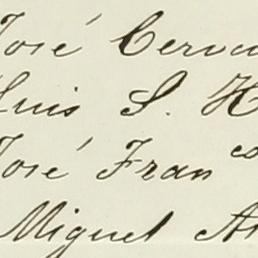 José Cerva
Luis S. H
José Fran co
Miguel A